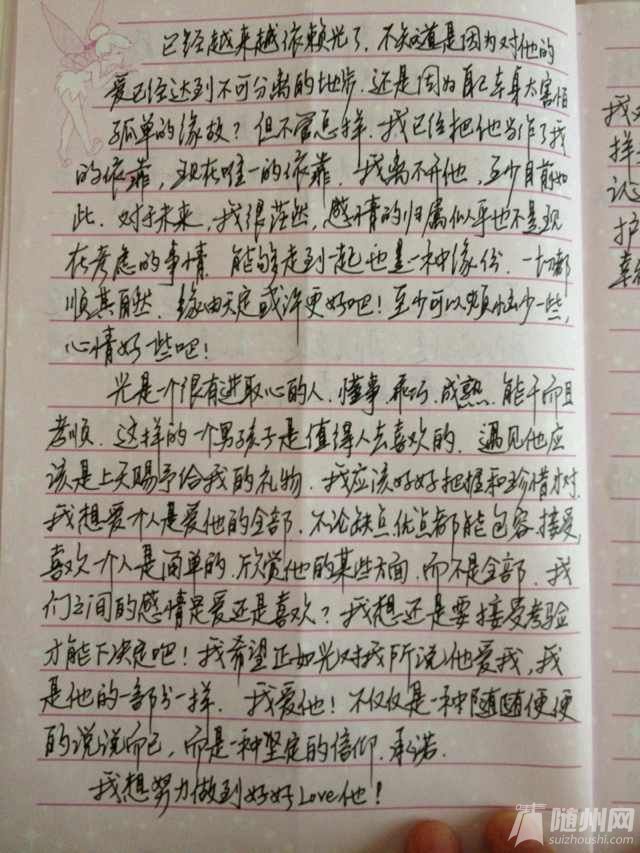 已经越来越依赖光了，不知道是因为对他的
爱已经达到不可分离的地步，还是因为自己本身太害怕
孤单的缘故？但不管怎样，我已经把他当作了我
的依靠，现在唯一的依靠，我离不开他，至少目前如
此，对于未来，我很茫然，感情的归属似乎也不是现
在考虑的事情，能够走到一起也是一种缘份，一切都
顺其自然，缘由天定或许更好吧！至少可以烦恼少一些，
心情好一些吧！
光是一个很有进取心的人，懂事，乖巧，成熟，能干而且
孝顺，这样的一个男孩子是值得人去喜欢的，遇见他应
该是上天赐予给我的礼物，我应该好好把握和珍惜才对，
我想爱个人是爱他的全部，不论缺点优点都能包容，接受，
喜欢一个人是简单的，欣赏他的某些方面，而不是全部，我
们之间的感情是爱还是喜欢？我想还是要接受考验
才能下决定吧！我希望正如光对我所说他爱我，我
是他的一部分一样，我爱他！不仅仅是一种随随便便
的说说而已，而是一种坚定的信仰，承诺，
我想努力做到好好Love他！
我
样
护
随州网
suizhoushi.com